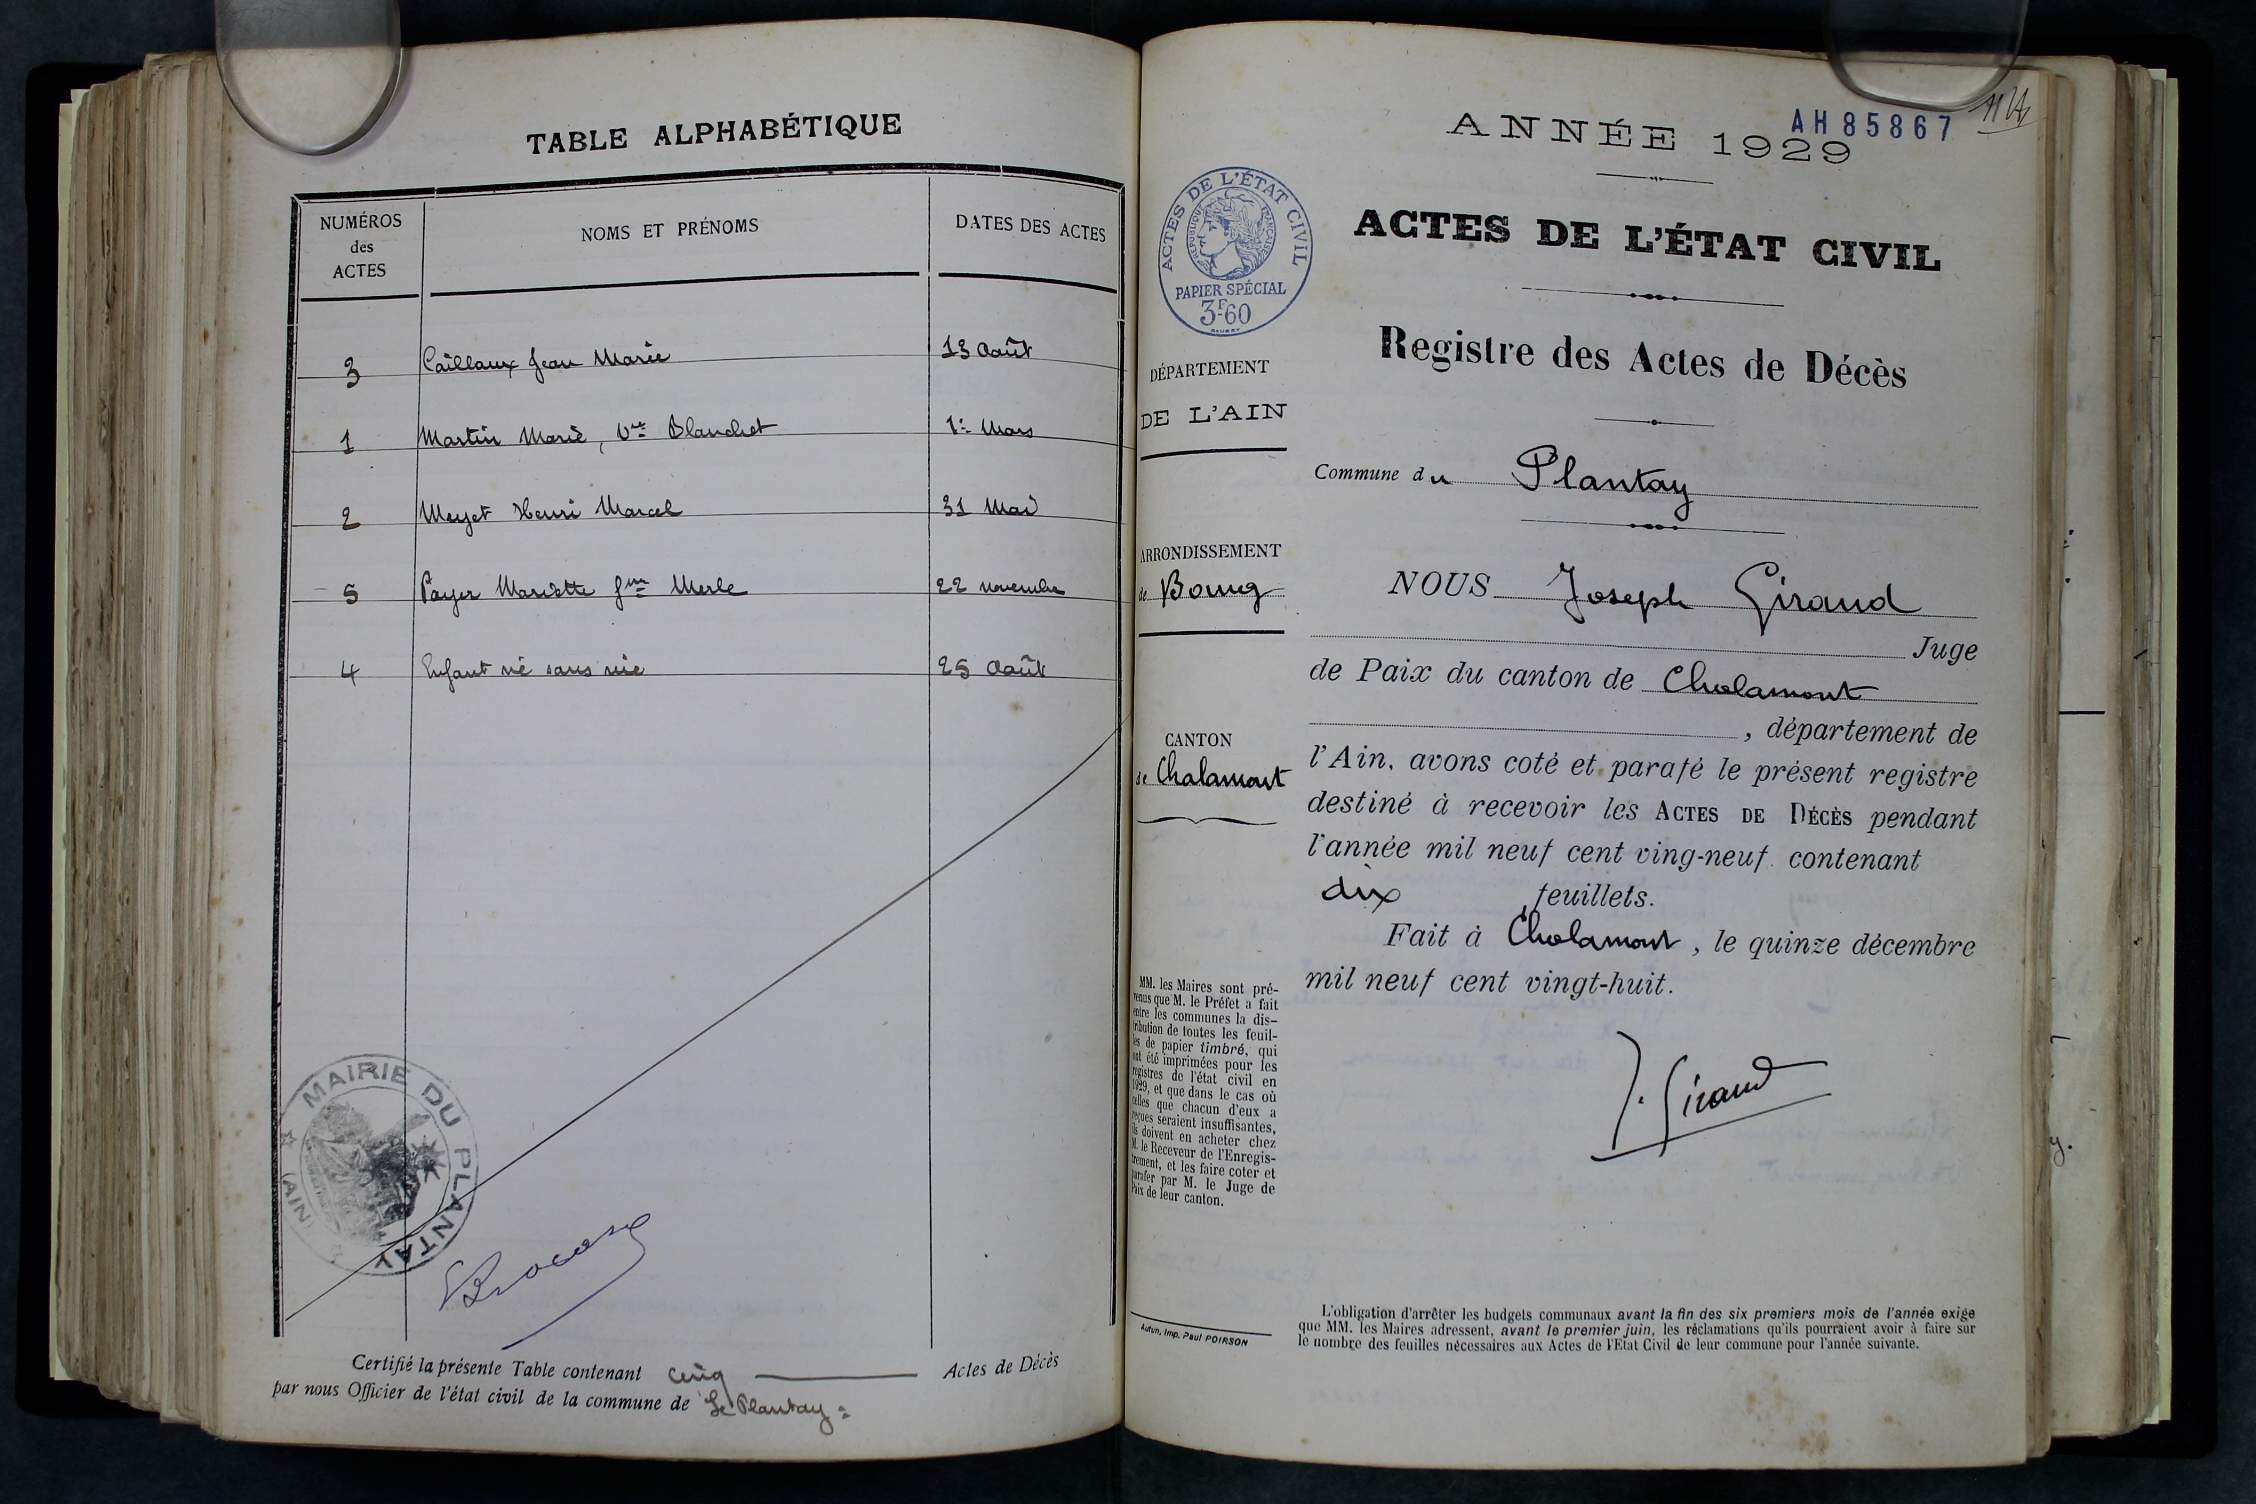 TABLE ALPHABÉTIQUE
NUMÉROS
des
ACTES
NOMS ET PRÉNOMS
DATES DES ACTES
3 Caillaux Jean Marie 13 Août
1 Martin Marie, Vve Blanchet 1er Mars
2 Meyet Henri Marcel 31 Mai
5 Payer Mariette fme Merle 22 novembre
4 Enfant né sans vie 25 Août
MAIRIE DU PLANTAY
(AIN)
Certifié la présente Table contenant cinq Actes de Décès
par nous Officier de l'état civil de la commune de Le Plantay
AH 85867
ANNÉE 1929
ACTES DE L'ÉTAT CIVIL
RÉPUBLIQUE FRANÇAISE
PAPIER SPÉCIAL
3F60
ACTES DE L'ÉTAT CIVIL
Registre des Actes de Décès
DÉPARTEMENT
DE L'AIN
Commune du Plantay
ARRONDISSEMENT
de Bourg
CANTON
de Chalamont
NOUS Joseph Giraud
Juge
de Paix du canton de Chalamont
, département de
l'Ain, avons coté et parafé le présent registre
destiné à recevoir les ACTES DE DÉCÈS pendant
l'année mil neuf cent ving-neuf contenant
dix feuillets.
Fait à Chalamont, le quinze décembre
mil neuf cent vingt-huit.
J. Giraud
MM. les Maires sont pré-
venus que M. le Préfet a fait
entre les communes la dis-
tribution de toutes les feuil-
les de papier timbré, qui
ont été imprimées pour les
registres de l'état civil en
1929, et que dans le cas où
celles que chacun d'eux a
reçues seraient insuffisantes,
ils doivent en acheter chez
M. le Receveur de l'Enregis-
trement, et les faire coter et
parafer par M. le Juge de
Paix de leur canton.
Autun, Imp. Paul POIRSON
L'obligation d'arrêter les budgets communaux avant la fin des six premiers mois de l'année exige
que MM. les Maires adressent, avant le premier juin, les réclamations qu'ils pourraient avoir à faire sur
le nombre des feuilles nécessaires aux Actes de l'Etat Civil de leur commune pour l'année suivante.